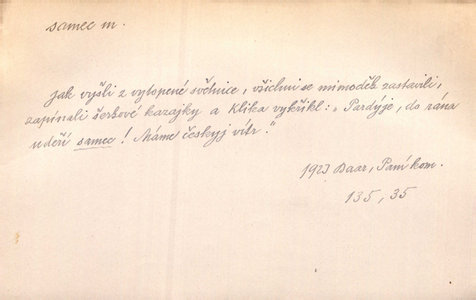 samec m.
Jak vyšli z vytopené světnice, všichni se mimoděk zastavili,
zapínali šerkové kazajky a Klika vykřikl: „Pardyjé, do rána
udeří samec! Máme českyj vítr."
1923 Baar, Paní kom.
135, 35